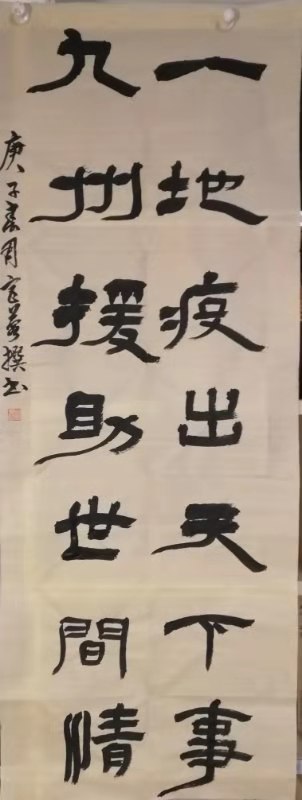 一地疫出天下事
九州援助世間情
庚子春周
撰书